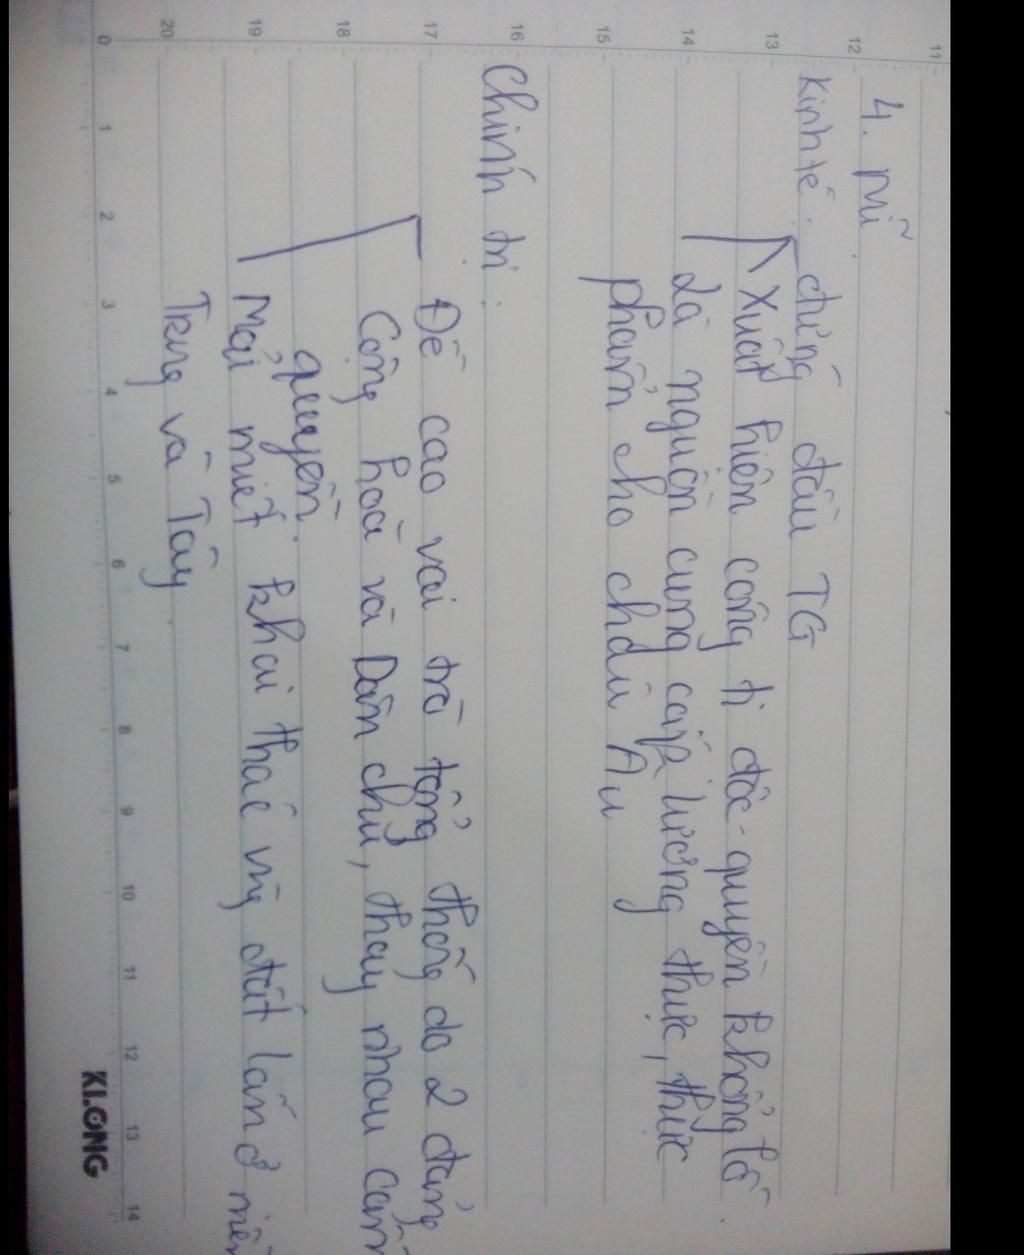 4. Mĩ
Kinh tế: đứng đầu TG
Xuất hiện công ti độc quyền khổng lồ.
Là nguồn cung cấp lương thực, thực
phẩm cho châu Âu
Chính trị:
Đề cao vai trò tổng thống do 2 đảng
Cộng hoà và Dân chủ, thay nhau cầm
quyền.
Mải miết khai thác vùng đất lớn ở miền
Trung và Tây
11 12 13 14 15 16 17 18 19 20
0 1 2 3 4 5 6 7 8 9 10 11 12 13 14
KLONG